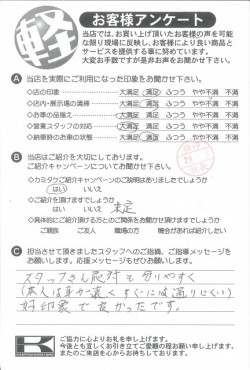 軽
お客様アンケート
当店では、お買い上げ頂いたお客様の声を可能
な限り現場に反映し、お客様により良い商品と
サービスを提供する事に努めています。
大変お手数ですが是非お聞かせ下さい。
A 当店を実際にご利用になった印象をお聞かせ下さい。
◇店の印象 大満足 満足 ふつう やや不満 不満
◇店内・展示場の清掃 大満足 満足 ふつう やや不満 不満
◇お車の品揃え 大満足 満足 ふつう やや不満 不満
◇営業スタッフの対応 大満足 満足 ふつう やや不満 不満
◇納車時のお車の状態 大満足 満足 ふつう やや不満 不満
B 当店はご紹介を大切にしております。
ご紹介キャンペーンについてお聞かせ下さい。
◇カミタケご紹介キャンペーンのご説明はありましたでしょうか
はい いいえ
◇ご紹介を頂けますでしょうか
はい いいえ 未定
◇具体的にご紹介頂ける方とのご関係をお聞かせ頂けますでしょうか
ご親族 ご友人 職場の方 機会があれば紹介したい
C 担当させて頂きましたスタッフへのご指摘、ご指導メッセージを
お願いします。応援メッセージもぜひお願いします。
スタッフさん応対も分りやすく
(本人は耳が遠くすぐには通りにくい)
好印象で良かったです。
K
ご協力に心よりお礼を申し上げます。
今後とも宜しくお引き立てご愛顧の程お願い申し上げます。
またのご来店を心からお待ちしております。